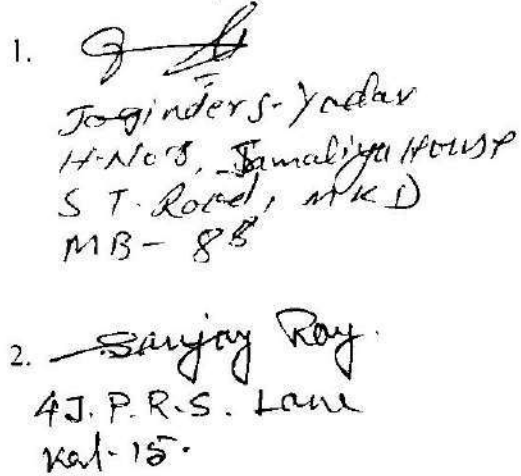 1.
Joginder S. Yadav
H-No 8, Jamaliya House
S T. Road, MKD
MB - 88
2. Sanjay Roy.
4J. P. R.S. Lane
Kal-15.